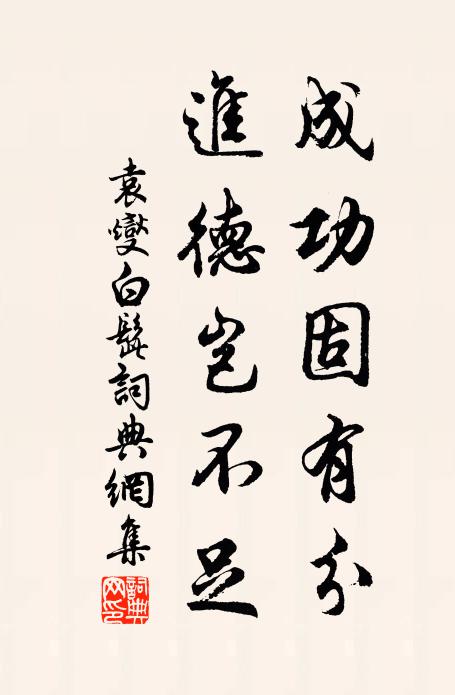 成功固有分
進德豈不足
袁燮白髭詞典網集
詞典網印